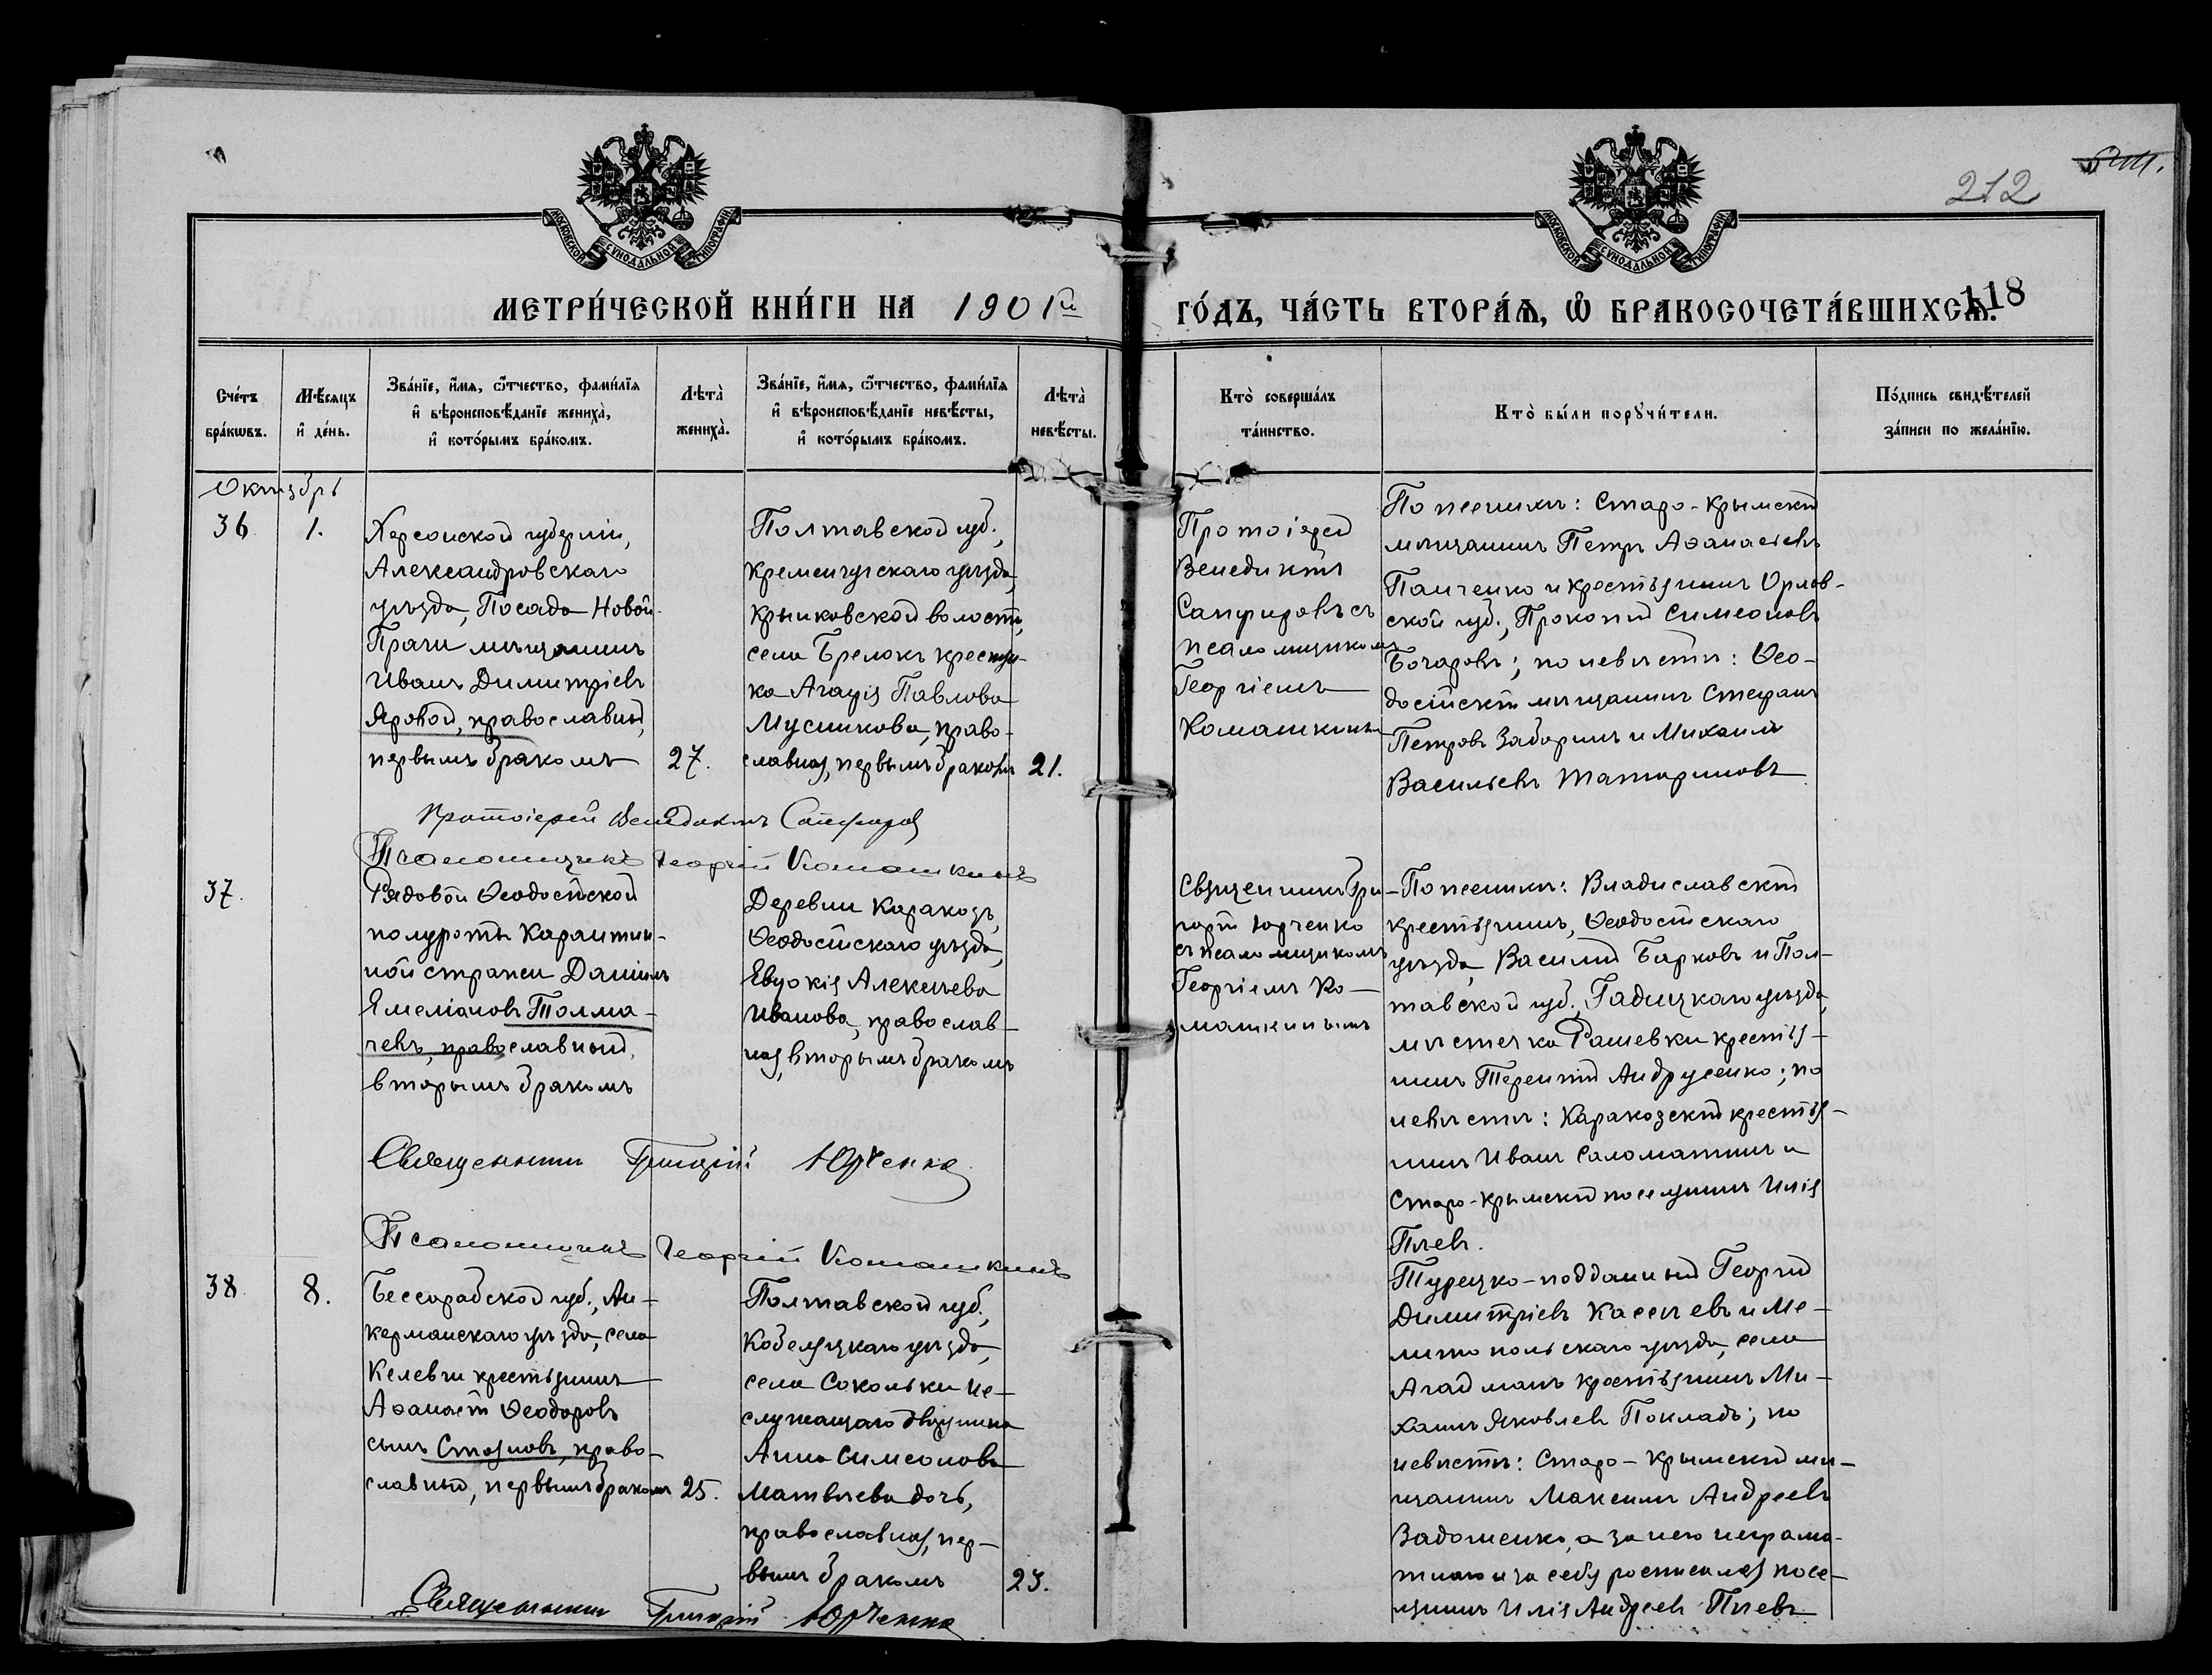 212
118
МОСКОВСКОЙ СѴНОДАЛЬНОЙ ТИПОГРАФІИ
МОСКОВСКОЙ СѴНОДАЛЬНОЙ ТИПОГРАФІИ
МЕТРИ́ЧЕСКОЙ КНИ́ГИ НА 1901й
ГО́ДЪ, ЧА́СТЬ ВТОРА́Ѧ, Ѡ҆ БРАКОСОЧЕТА́ВШИХСѦ.
Сче́тъ
бра́кѡвъ.
Мѣ́сяцъ
и҆ де́нь.
Зва́нїе, и҆́мѧ, ѻ҆́тчество, фами́лїѧ
и҆ вѣроисповѣ́данїе жениха̀,
и҆ кото́рымъ бра́комъ.
Лѣта̀
жениха̀.
Зва́нїе, и҆́мѧ, ѻ҆́тчество, фами́лїѧ
и҆ вѣроисповѣ́данїе невѣ́сты,
и҆ кото́рымъ бра́комъ.
Лѣта̀
невѣ́сты.
Кто̀ соверша́лъ
та́инство.
Кто̀ бы́ли порꙋчи́тели.
По́дпись свидѣ́телей
за́писи по жела́нїю.
Октябрь
36.
1.
Херсонской губерніи,
Александровскаго
уѣзда, Посада Новой-
Праги мѣщанинъ
Иванъ Димитріевъ
Яровой, православный,
первымъ бракомъ
27.
Полтавской губ.,
Кременчугскаго уѣзда,
Крыловской волости,
села крестьян-
ка Агаѳія Павлова
право-
славная, первымъ бракомъ
21.
Протоіерей
Венедиктъ
Сапфировъ съ
псаломщикомъ
Георгіемъ
Комашкинымъ
По женихѣ: Старо-Крымскій
мѣщанинъ Петръ Аѳанасіевъ
Панченко и крестьянинъ Орлов-
ской губ., Прокопій Симеоновъ
Бочаровъ; по невѣстѣ: Ѳео-
досійскій мѣщанинъ Стефанъ
Петровъ и Михаилъ
Васильевъ Татариновъ
Протоіерей Венедиктъ Сапфировъ
Псаломщикъ Георгій Комашкинъ
37.
Рядовой Ѳеодосійской
полуроты Карантин-
ной стражи Даніилъ
Емеліановъ Толма-
чевъ, православный,
вторымъ бракомъ
Деревни Каракозъ,
Ѳеодосійскаго уѣзда,
Евдокія Алексѣева
Иванова, православ-
ная, вторымъ бракомъ
Священникъ Гри-
горій Юрченко
съ псаломщикомъ
Георгіемъ Ко-
машкинымъ
По женихѣ: Владиславскій
крестьянинъ, Ѳеодосійскаго
уѣзда, Василій Барковъ и Пол-
тавской губ., Гадяцкаго уѣзда,
мѣстечка Рашевки крестья-
нинъ Терентій Андрусенко; по
невѣстѣ: Каракозскій крестья-
нинъ Иванъ Саломатинъ и
Старо-Крымскій поселянинъ Илія
Плевъ.
Священникъ Григорій Юрченко
Псаломщикъ Георгій Комашкинъ
38.
8.
Бессарабской губ., Ак-
керманскаго уѣзда, села
крестьянинъ
Аѳанасій Ѳеодоровъ
сынъ Стояновъ, право-
славный, первымъ бракомъ
25.
Полтавской губ.,
Кобеляцкаго уѣзда,
села Сокольки не-
служащаго дворянина
Анна Симеонова
Матвѣева дочь,
православная, пер-
вымъ бракомъ
23.
Турецко-подданный Георгій
Димитріевъ и Ме-
литопольскаго уѣзда, села
Агайманъ крестьянинъ Ми-
хаилъ Яковлевъ Покладъ; по
невѣстѣ: Старо-Крымскій мѣ-
щанинъ Максимъ Андреевъ
а за него неграмо-
тнаго и за себя росписался посе-
лянинъ Илія Андреевъ Плевъ
Священникъ Григорій Юрченко